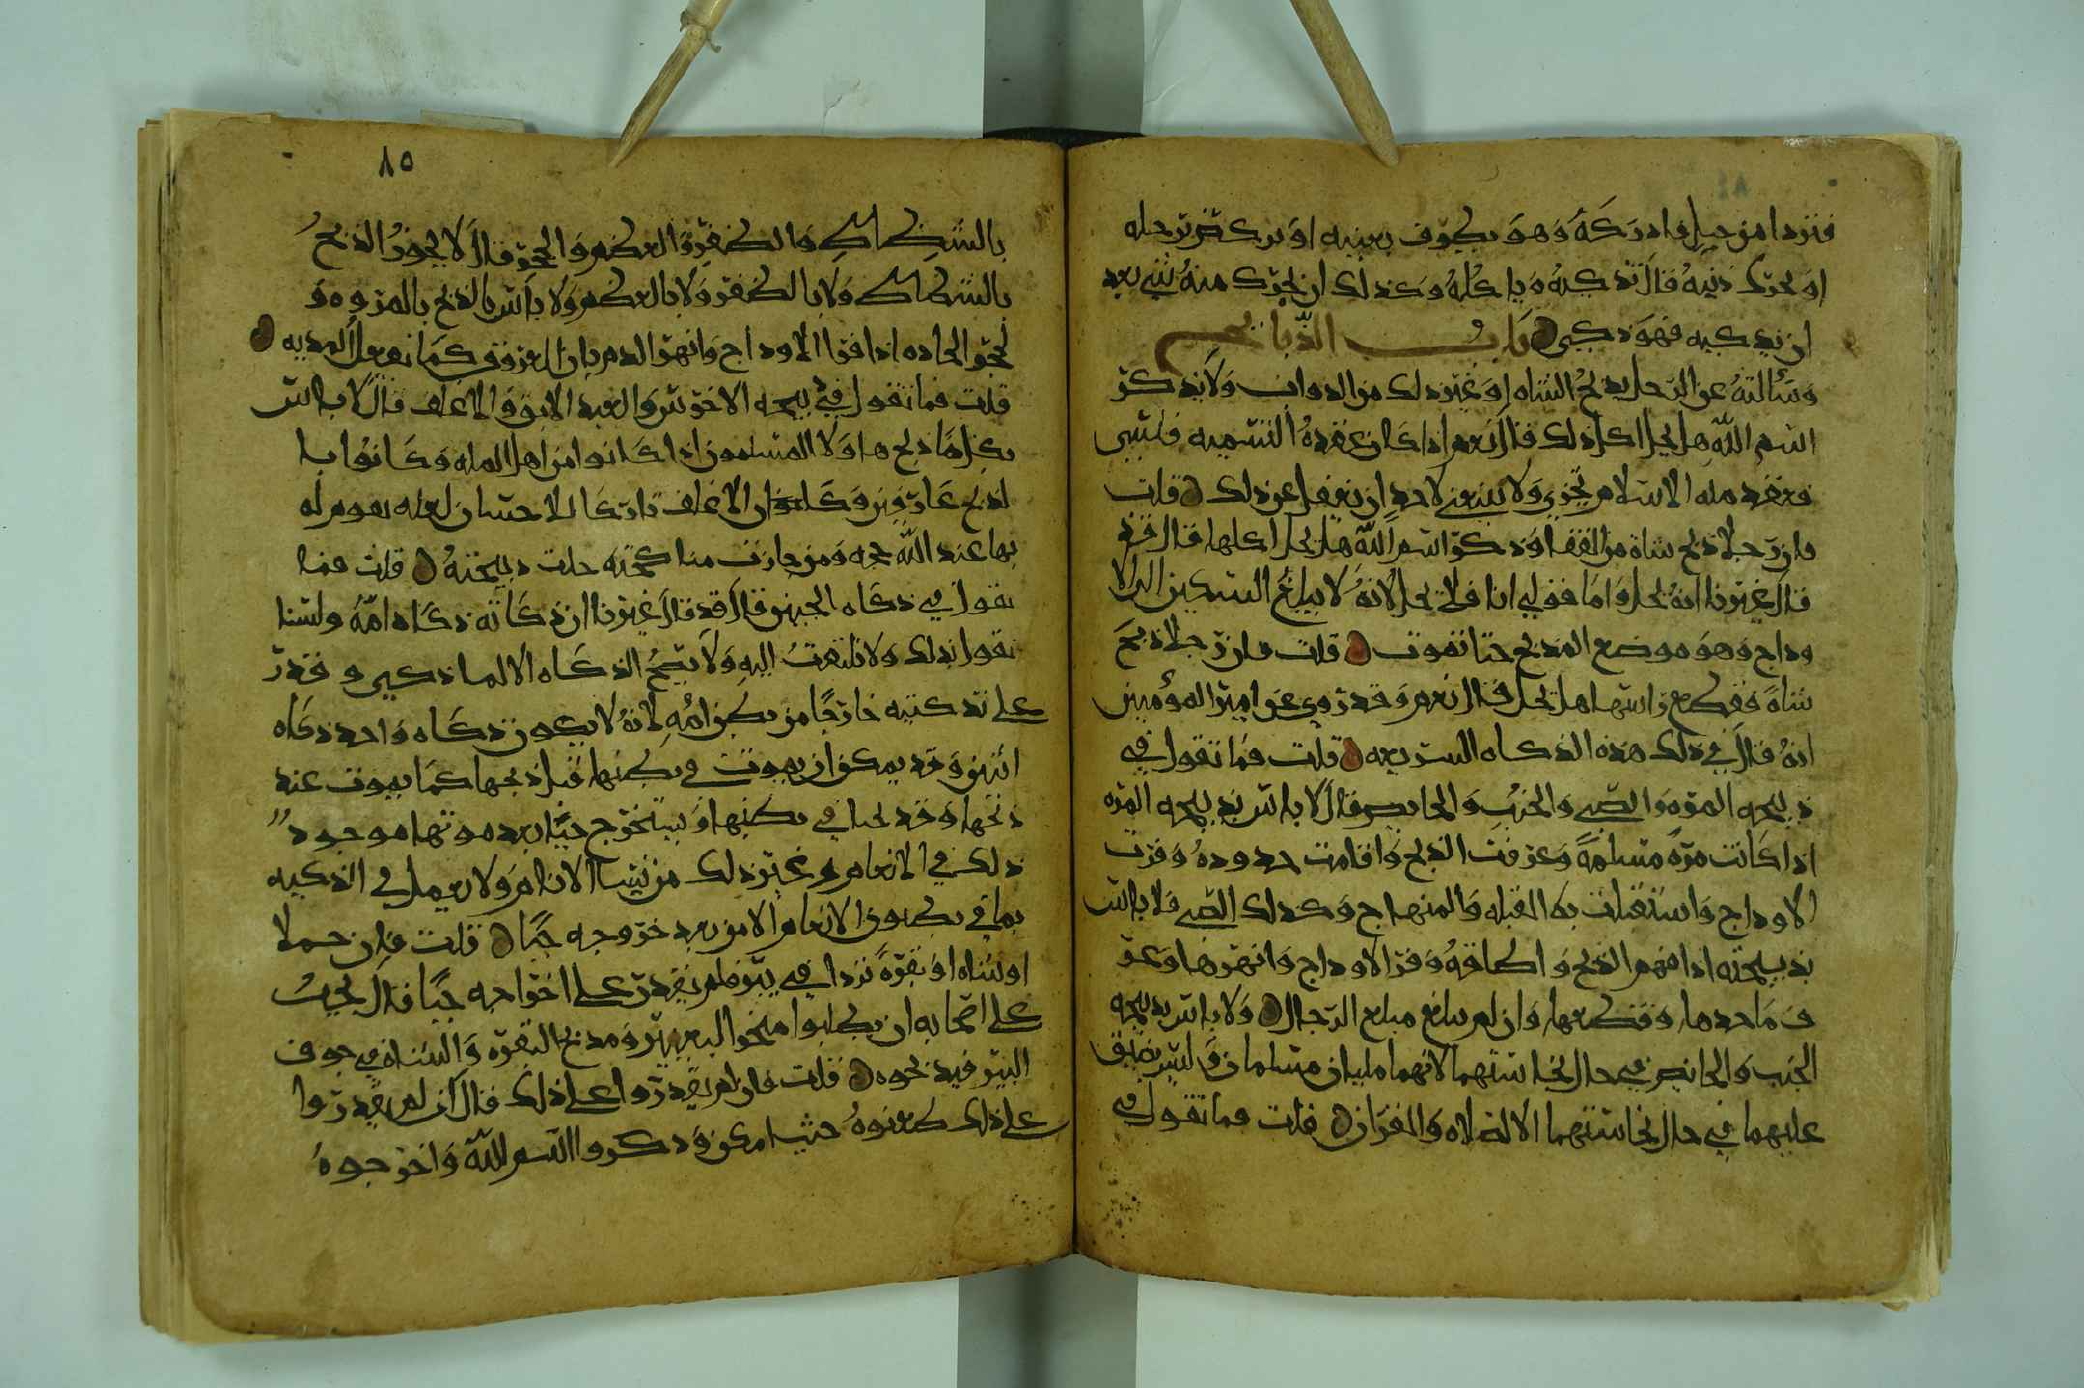 فتردا من جبل فادركه وهو يطرف بعينه او يركض برجله
او يحرك ذنبه قال تذكيه وياكله وكذلك ان تحرك منه شيء بعد
ان يذكيه فهو ذكي باب الذبائح
وسألته عن الرجل يذبح الشاه او غير ذلك من الدواب ولا يذكر
اسم الله هل يحل اكل ذلك قال نعم اذا كان عقده التسميه فنسي
فعقد مله الاسلام تجزي ولا ينبغي لاحد ان يغفل عن ذلك قلت
فان رجلا ذبح شاة من القفا وذكر اسم الله هل يحل اكلها قال قد
قال غيرنا انه يحل واما قولي انا فلا تحل لانه لا يبلغ السكين الى الا
وداج وهو موضع المذبح حتا تموت قلت فان رجلا ذبح
شاة فقطع راسها هل تحل قال نعم وقد روي عن امير المؤمنين
انه قال في ذلك هذه الذكاه السريعه قلت فما تقول في
ذبيحه المره والصبي والجنب والحايض قال لا باس بذبيحه المره
اذا كانت مره مسلمة وعرفت الذبح واقامت حدوده وفرت
الاوداج واستقبلت به القبله والمنهاج وكذلك الصبي فلا باس
بذبيحته اذا فهم الذبح واطاقه وفرا الاوداج وانهرها وعر
ف ما حدها وقطعها وان لم يبلغ مبلغ الرجال ولا باس بذبيحه
الجنب والحايض في حال نجاستهما لانهما مليان مسلمان وليس يضيق
عليهما في حال نجاستهما الا الصلاه والقران قلت فما تقول في
٨٥
بالشظاظ والظفر والعظم والحجر قال لا يجوز الذبح
بالشظاظ ولا بالظفر ولا بالعظم ولا باس بالذبح بالمروه و
الحجر الحاده اذا فرا الاوداج وانهر الدم وابان العروق كما تفعل المديه
قلت فما تقول في ذبيحه الاخرس والعبد الابق والاغلف قال لا باس
بكل ما ذبح هاولا المسلمون اذا كانوا من اهل المله وكانوا با
لذبح عارفين وكان الاغلف تاركا للاختتان لعله تقوم له
بها عند الله حجه ومن جازت مناكحته حلت ذبيحته قلت فما
تقول في ذكاه الجنين قال قد قال غيرنا ان ذكاته ذكاه امه ولسنا
نقول بذلك ولا نلتفت اليه ولا تصح الذكاه الا لما ذكي وقدر
على تذكيته خارجا من بطن امه لانه لا يكون ذكاه واحد ذكاه
اثنين وقد يمكن ان يموت في بطنها قبل ذبحها كما يموت عند
ذبحها وقد يحيا في بطنها او يستخرج حيا بعد موتها موجود
ذلك في الانعام وغير ذلك من نسا الانام ولا يعمل في الذكيه
بما في بطون الانعام الا من بعد خروجه حيا قلت فان جملا
او شاه او بقرة تردا في بير فلم يقدر على اخراجه حيا قال يجب
على اصحابه ان يطلبوا منحر البعير ومذبح البقره والشاه في جوف
البير فيذبحوه قلت فان لم يقدروا على ذلك قال ان لم يقدروا
على ذلك طعنوه حيث امكن وذكروا اسم الله واخرجوه